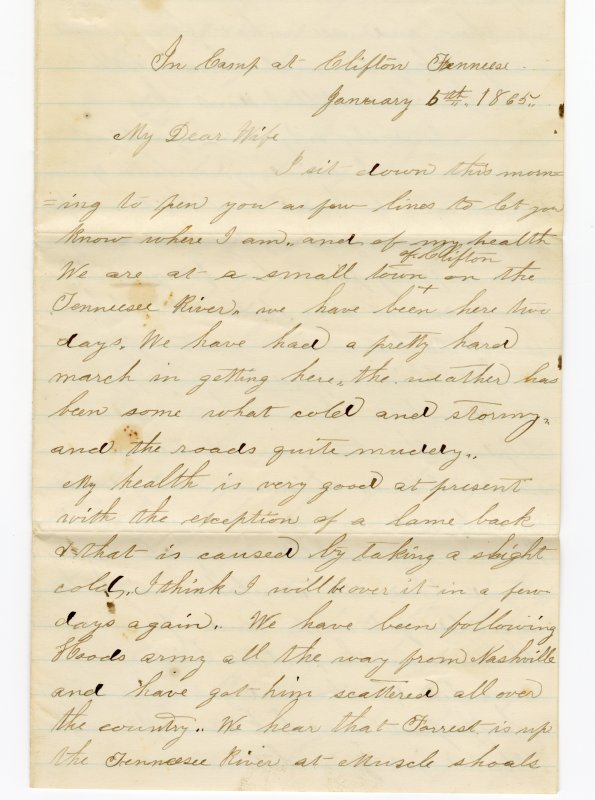 In Camp at Clifton Tennesee.
January 5th, 1865,
My Dear Wife
I sit down this morn=
=ing to pen you a few lines to let you
know where I am, and of my health
of Clifton
We are at a small town on the
Tennessee River, we have been here two
days. We have had a pretty hard
march in getting here, the weather has
been some what cold and stormy,
and the roads quite muddy,
My health is very good at present
with the exception of a lame back
& that is caused by taking a slight
cold, I think I will be over it in a few
days again. We have been following
Hoods army all the way from Nashville
and have got him scattered all over
the country, We hear that Forrest is up
the Tennessee River at Muscle shoals